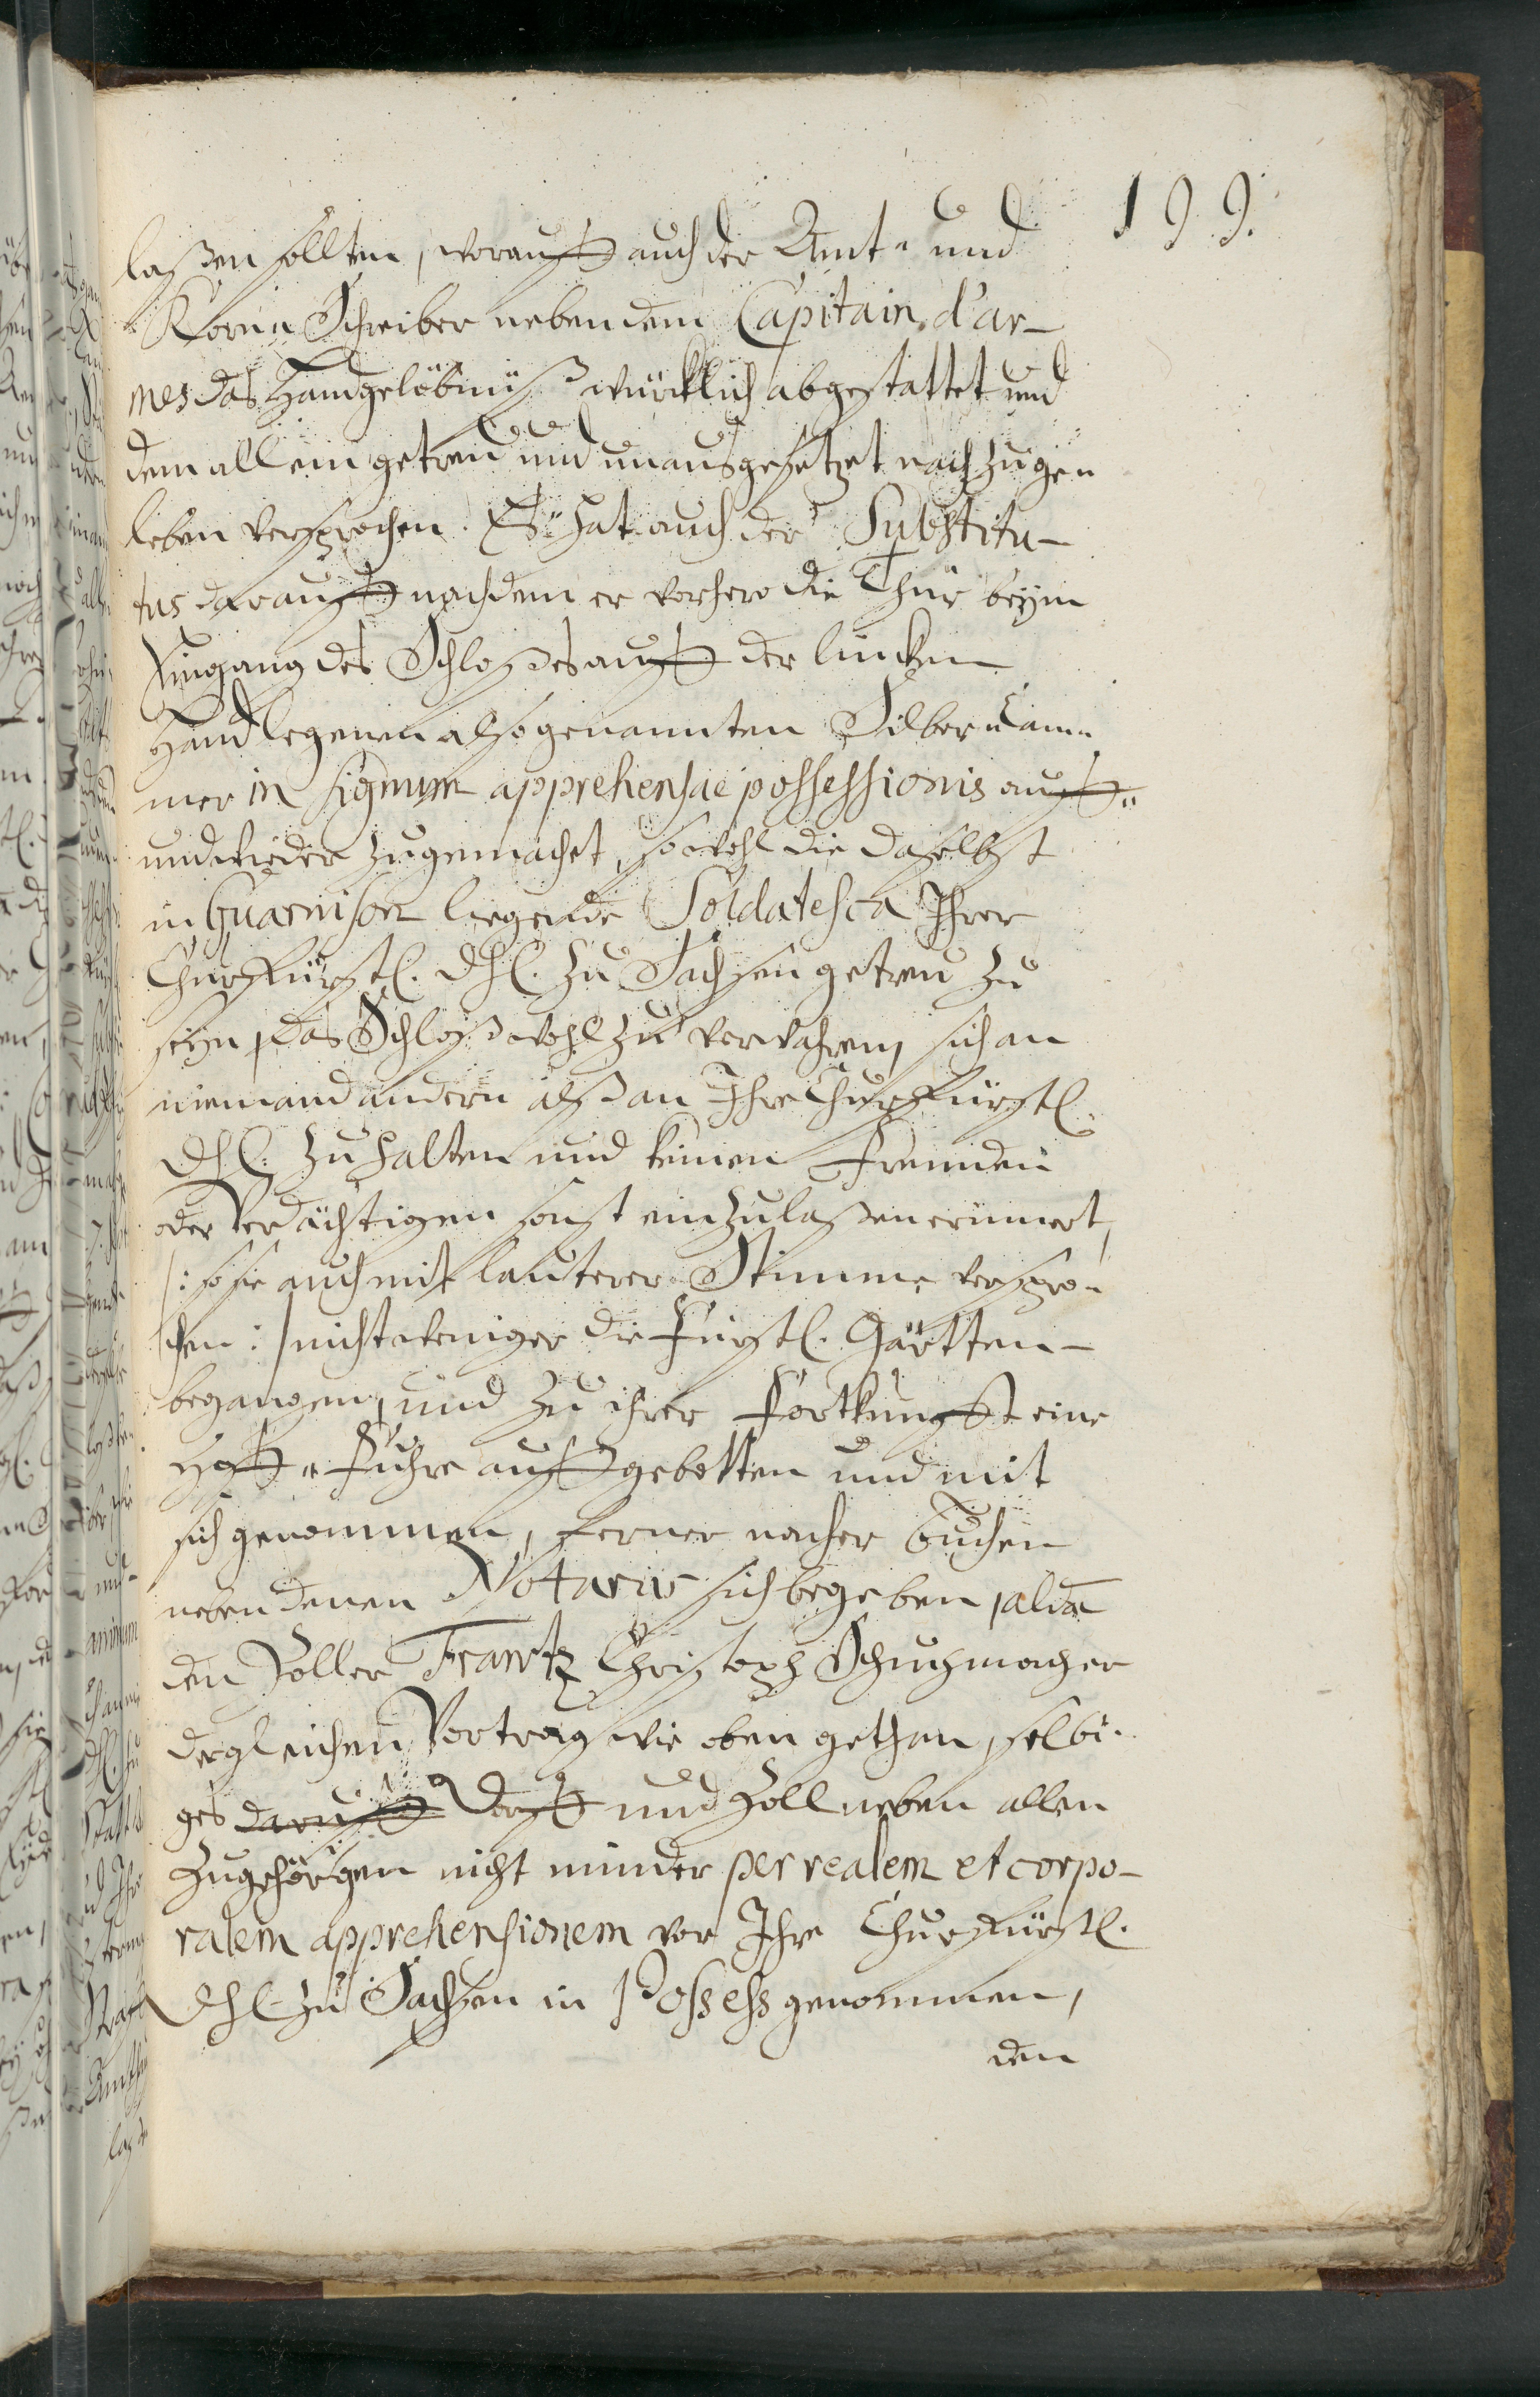 199.
laßen sollten, worauff auch der Amt- und
Korn- Schreiber neben dem Capitain d'ar-
mes das Handgelöbnüß würcklich abgestattet und
dem allem getreu und unausgesetzet nachzuge-
leben versprochen. Es hat auch der Substitu-
tus darauff nachdem er vorhero die Thür beym
Eingang des Schloßes auff der lincken
Hand legenen also genannten Silber Cam-
mer in signum apprehensae possessionis auff-
und wieder zugemachet, sowohl die daselbst
in Guarnison liegende Soldatesca Ihrer
Churfürstl. Dhl. zu Sachsen getreu zu
seyn, das Schloß wohl zu verwahren, sich an
niemand andern alß an Ihre Churfürstl.
Dhl. zu halten und keinen Frembden
oder Verdächtigen sonst einzulaßen erinnert,
/: so sie auch mit lauterer Stimme verspro-
chen :/ nicht weniger die Fürstl. Gärtten
begangen, und zu ihrer Fortkunfft eine
Hoff- Fuhre auffgebotten und mit
sich genommen, ferner nacher Buchen
neben denen Notariis sich begeben, alda
den Zoller Frantz Christoph Schuchmacher
dergleichen Vortrag wie oben gethan, selbi-
ges darauff Dorff und Zoll neben allen
Zugehörigen nicht minder per realem et corpo-
ralem apprehensionem vor Ihre Churfürstl.
Dhl. zu Sachsen in Possess genommen,
den